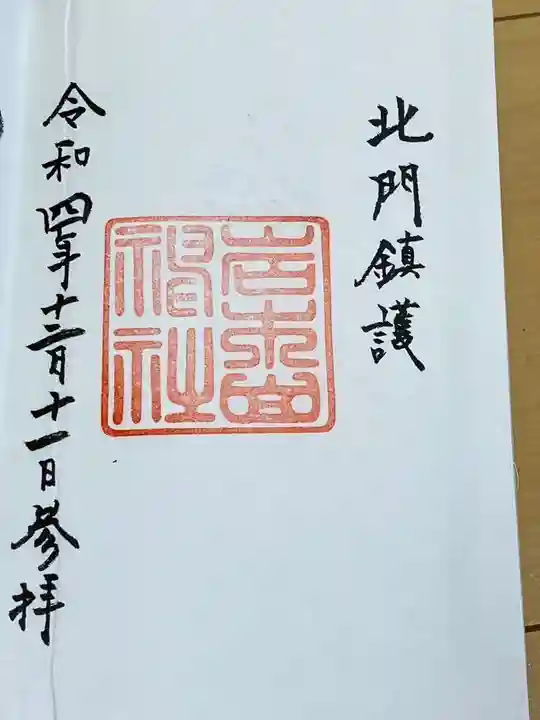 北門鎮護
岩木山
神社
令和四年十二月十一日参拝